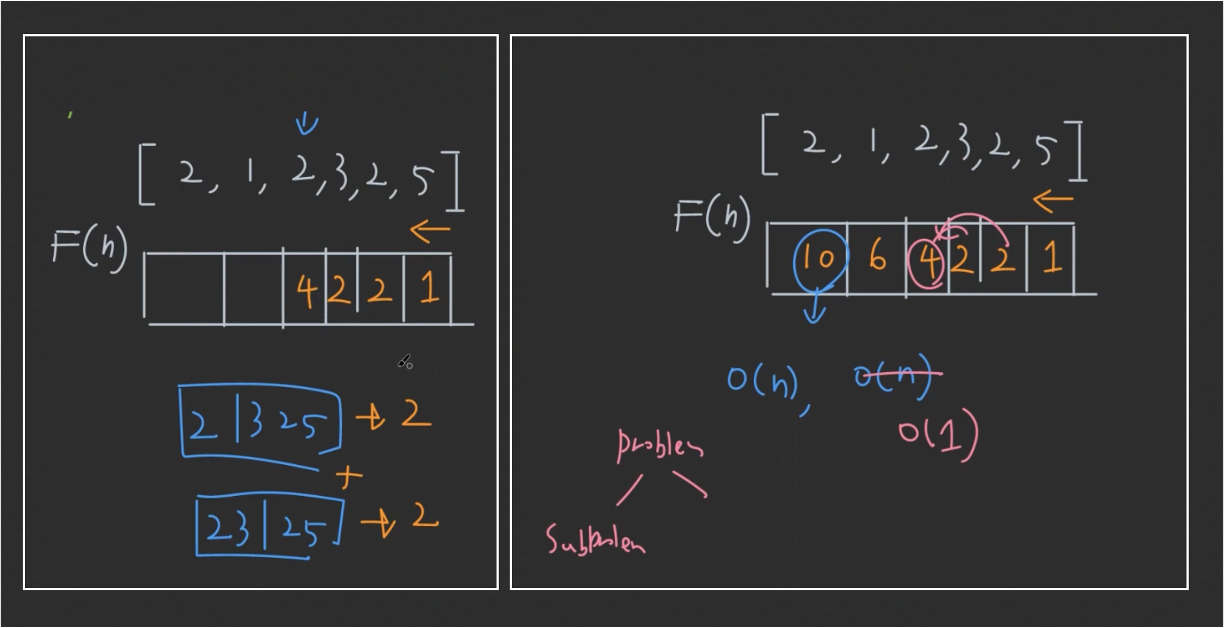 [ 2, 1, 2, 3, 2, 5 ]
F(n)
4 2 2 1
2 | 3 2 5 → 2
+
2 3 | 2 5 → 2
[ 2, 1, 2, 3, 2, 5 ]
F(n)
10 6 4 2 2 1
O(n), O(n)
O(1)
Problem